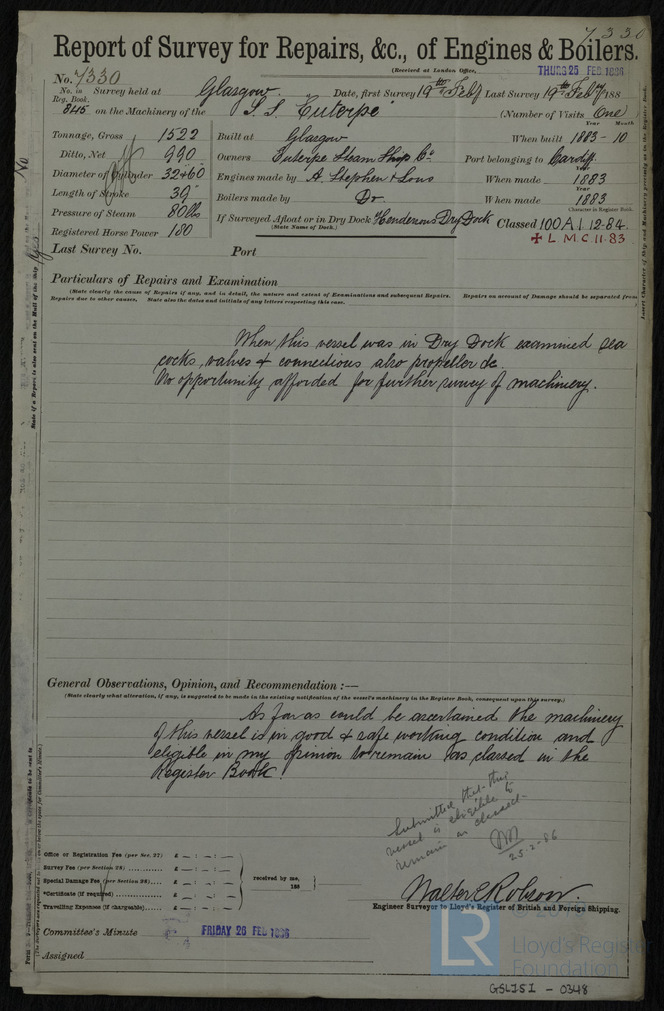 7330
Report of Survey for Repairs, &c., of Engines & Boilers.
(Received at London Office, THURS 25 FEB 1886
No. 7330
No. in Reg. Book. 845 Survey held at Glasgow. Date, first Survey 19th Feby Last Survey 19th Feby 188
on the Machinery of the S.S. "Euterpe" (Number of Visits One)
Tonnage, Gross 1522 Built at Glasgow When built 1883-10
Ditto, Net 990 Owners Euterpe Steam Ship Co. Port belonging to Cardiff.
Diameter of Cylinder 32+60 Engines made by A Stephen & Sons When made 1883
Length of Stroke 39" Boilers made by Do. When made 1883
Pressure of Steam 80lbs If Surveyed Afloat or in Dry Dock Hendersons Dry Dock Classed 100A1 12.84.
(State Name of Dock.) Character in Register Book.
Registered Horse Power 180 L.M.C 11.83
Last Survey No. Port
Particulars of Repairs and Examination
(State clearly the cause of Repairs if any, and in detail, the nature and extent of Examinations and subsequent Repairs. Repairs on account of Damage should be separated from
Repairs due to other causes. State also the dates and initials of any letters respecting this case.
When this vessel was in Dry Dock examined sea
cocks, valves & connections also propeller &c.
No opportunity afforded for further survey of machinery.
General Observations, Opinion, and Recommendation :—
(State clearly what alteration, if any, is suggested to be made in the existing notification of the vessel's machinery in the Register Book, consequent upon this survey.)
As far as could be ascertained the machinery
of this vessel is in good & safe working condition and
eligible in my opinion to remain as classed in the
Register Book.
Submitted that this
vessel is eligible to
remain as classed.
25-2-86
Office or Registration Fee (per Sec. 27) £ — : — : —
Survey Fee (per Section 28) £ — : — : —
Special Damage Fee (per Section 28) £ — : — : — received by me,
*Certificate (if required) £ — : — : — 188
Travelling Expenses (if chargeable) £ — : — : —
Walter C Robson.
Engineer Surveyor to Lloyd's Register of British and Foreign Shipping.
Committee's Minute FRIDAY 26 FEB 1886
Assigned
LR
Lloyd's Register
Foundation
GSL151 - 0348